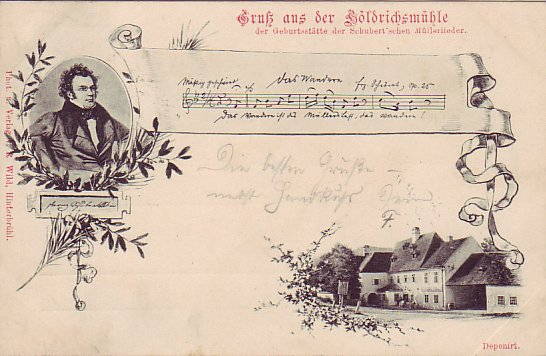 Gruß aus der Höldrichsmühle
der Geburtsstätte der Schubert'schen Müllerlieder.
Mäßig geschwind
Das Wandern
Frz. Schubert, op. 25
Das Wandern ist des Müllers Lust, das Wandern!
Die besten Grüße –
nebst Handkuß
F.
Phot. Verlag Wild, Hinterbrühl.
Deponirt.